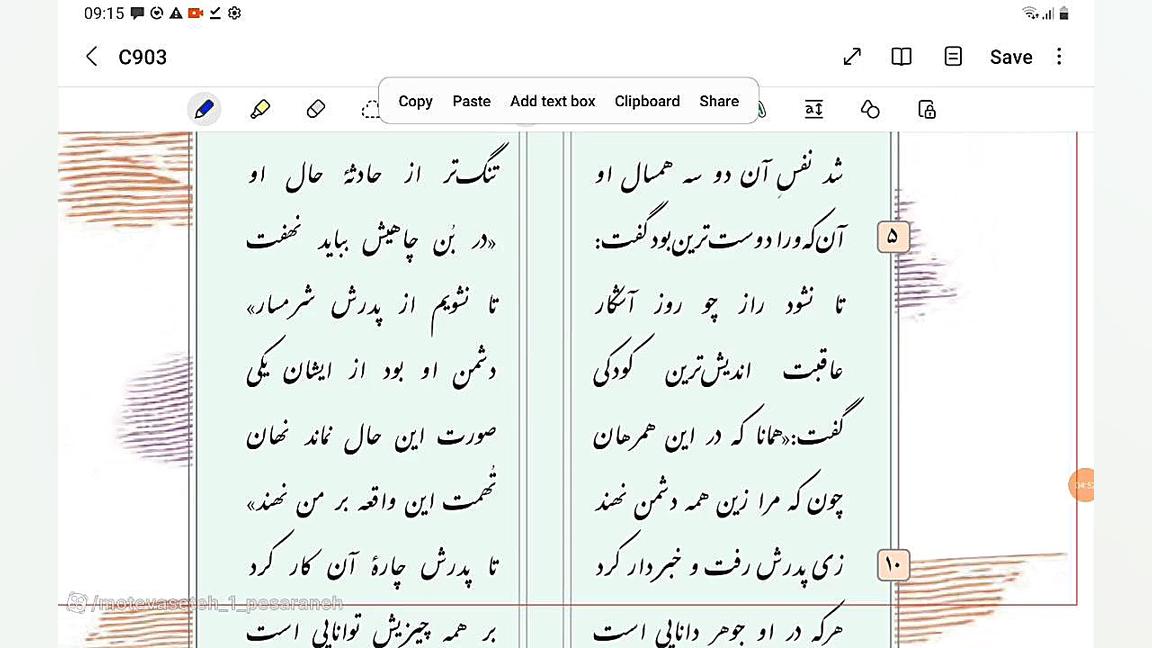 09:15
C903
Save
Copy Paste Add text box Clipboard Share
شد نفسِ آن دو سه همسال او تنگ‌تر از حادثهٔ حال او
۵
آن‌که ورا دوست‌ترین بود گفت: «در بُن چاهیش بباید نهفت
تا نشود راز چو روز آشکار تا نشویم از پدرش شرمسار»
عاقبت اندیش‌ترین کودکی دشمن او بود از ایشان یکی
گفت: «همانا که در این همرهان صورت این حال نماند نهان
چون که مرا زین همه دشمن نهند تُهمت این واقعه بر من نهند»
۱۰
زی پدرش رفت و خبردار کرد تا پدرش چارهٔ آن کار کرد
هرکه در او جوهر دانایی است بر همه چیزیش توانایی است
04:57
/motevaseteh_1_pesaraneh